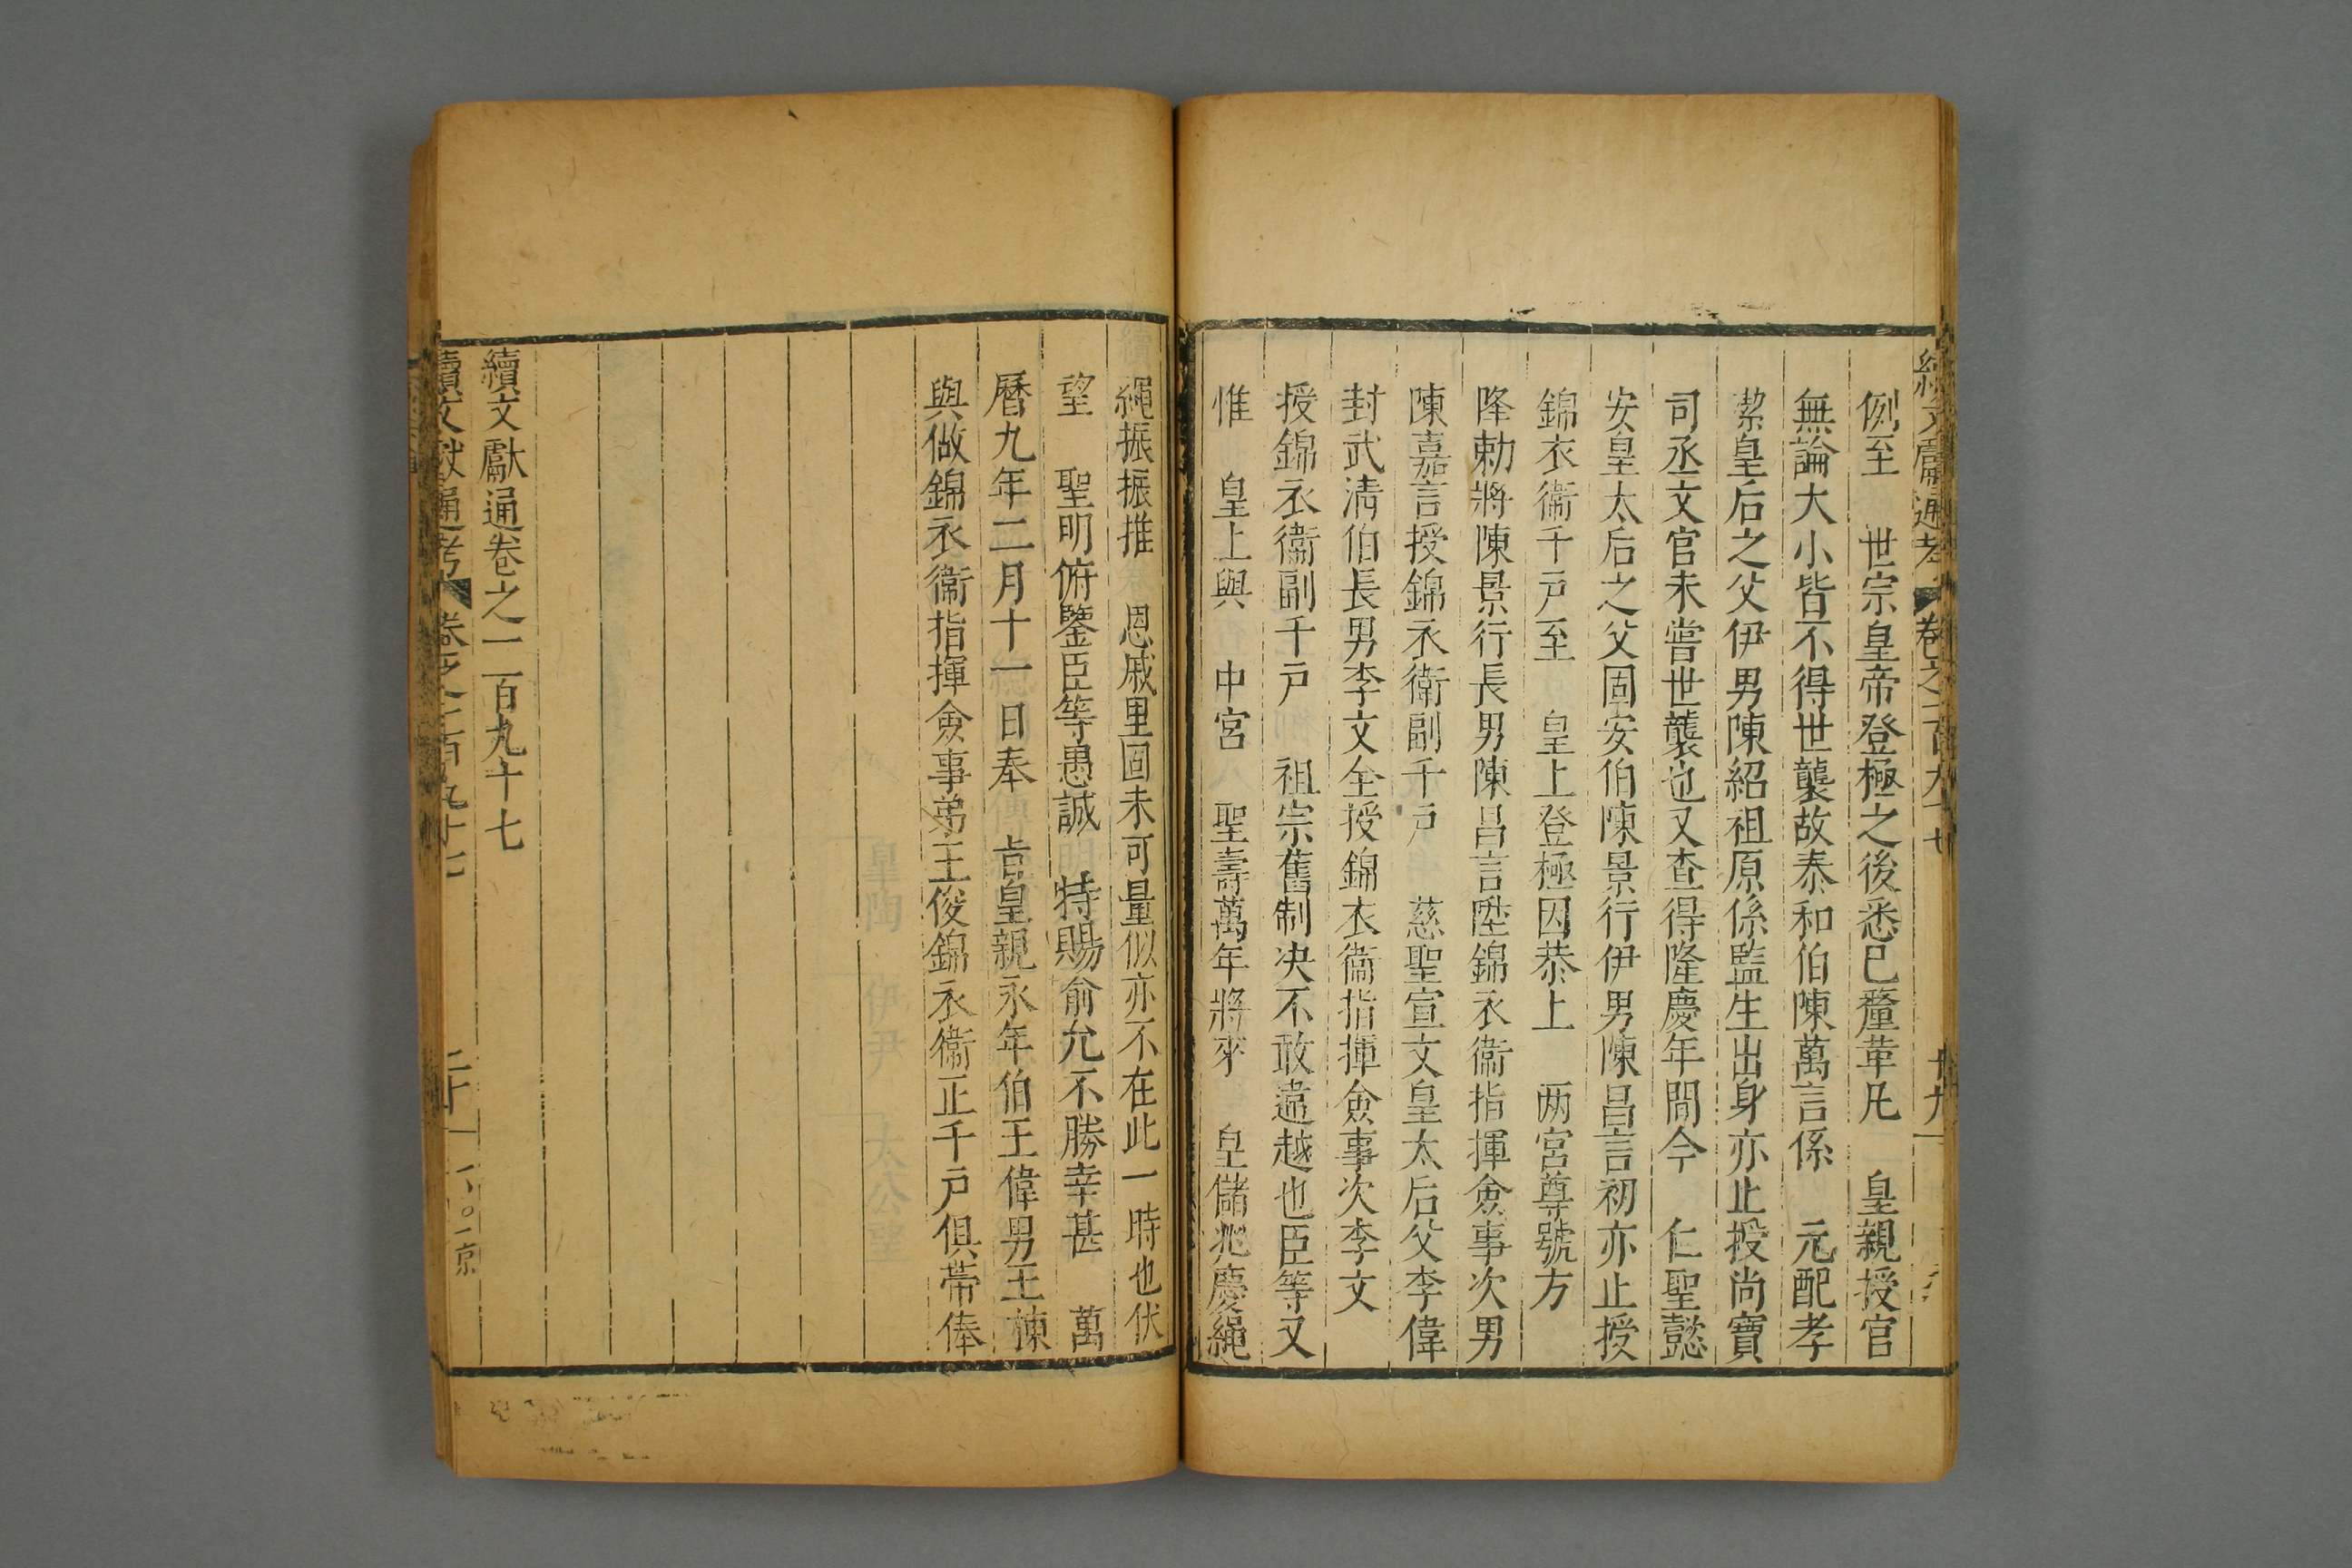 續文獻通考 卷之一百九十七 廿九
例至 世宗皇帝登極之後悉已釐革凡 皇親授官
無論大小皆不得世襲故泰和伯陳萬言係 元配孝
潔皇后之父伊男陳紹祖原係監生出身亦止授尚寶
司丞文官未嘗世襲也又查得隆慶年間今 仁聖懿
安皇太后之父固安伯陳景行伊男陳昌言初亦止授
錦衣衞千戸至 皇上登極因恭上 两宮尊號方
降勅將陳景行長男陳昌言陞錦衣衞指揮僉事次男
陳嘉言授錦衣衞副千戸 慈聖宣文皇太后父李偉
封武清伯長男李文全授錦衣衞指揮僉事次李文
授錦衣衞副千戸 祖宗舊制决不敢違越也臣等又
惟 皇上與 中宮 聖壽萬年將來 皇儲兆慶繩
繩振振推 恩戚里固未可量似亦不在此一時也伏
望 聖明俯鑒臣等愚誠 特賜俞允不勝幸甚 萬
曆九年二月十一日奉 旨皇親永年伯王偉男王棟
與做錦衣衞指揮僉事弟王俊錦衣衞正千戸俱帶俸
續文獻通卷之一百九十七
續文獻通考 卷之一百九十七 三十